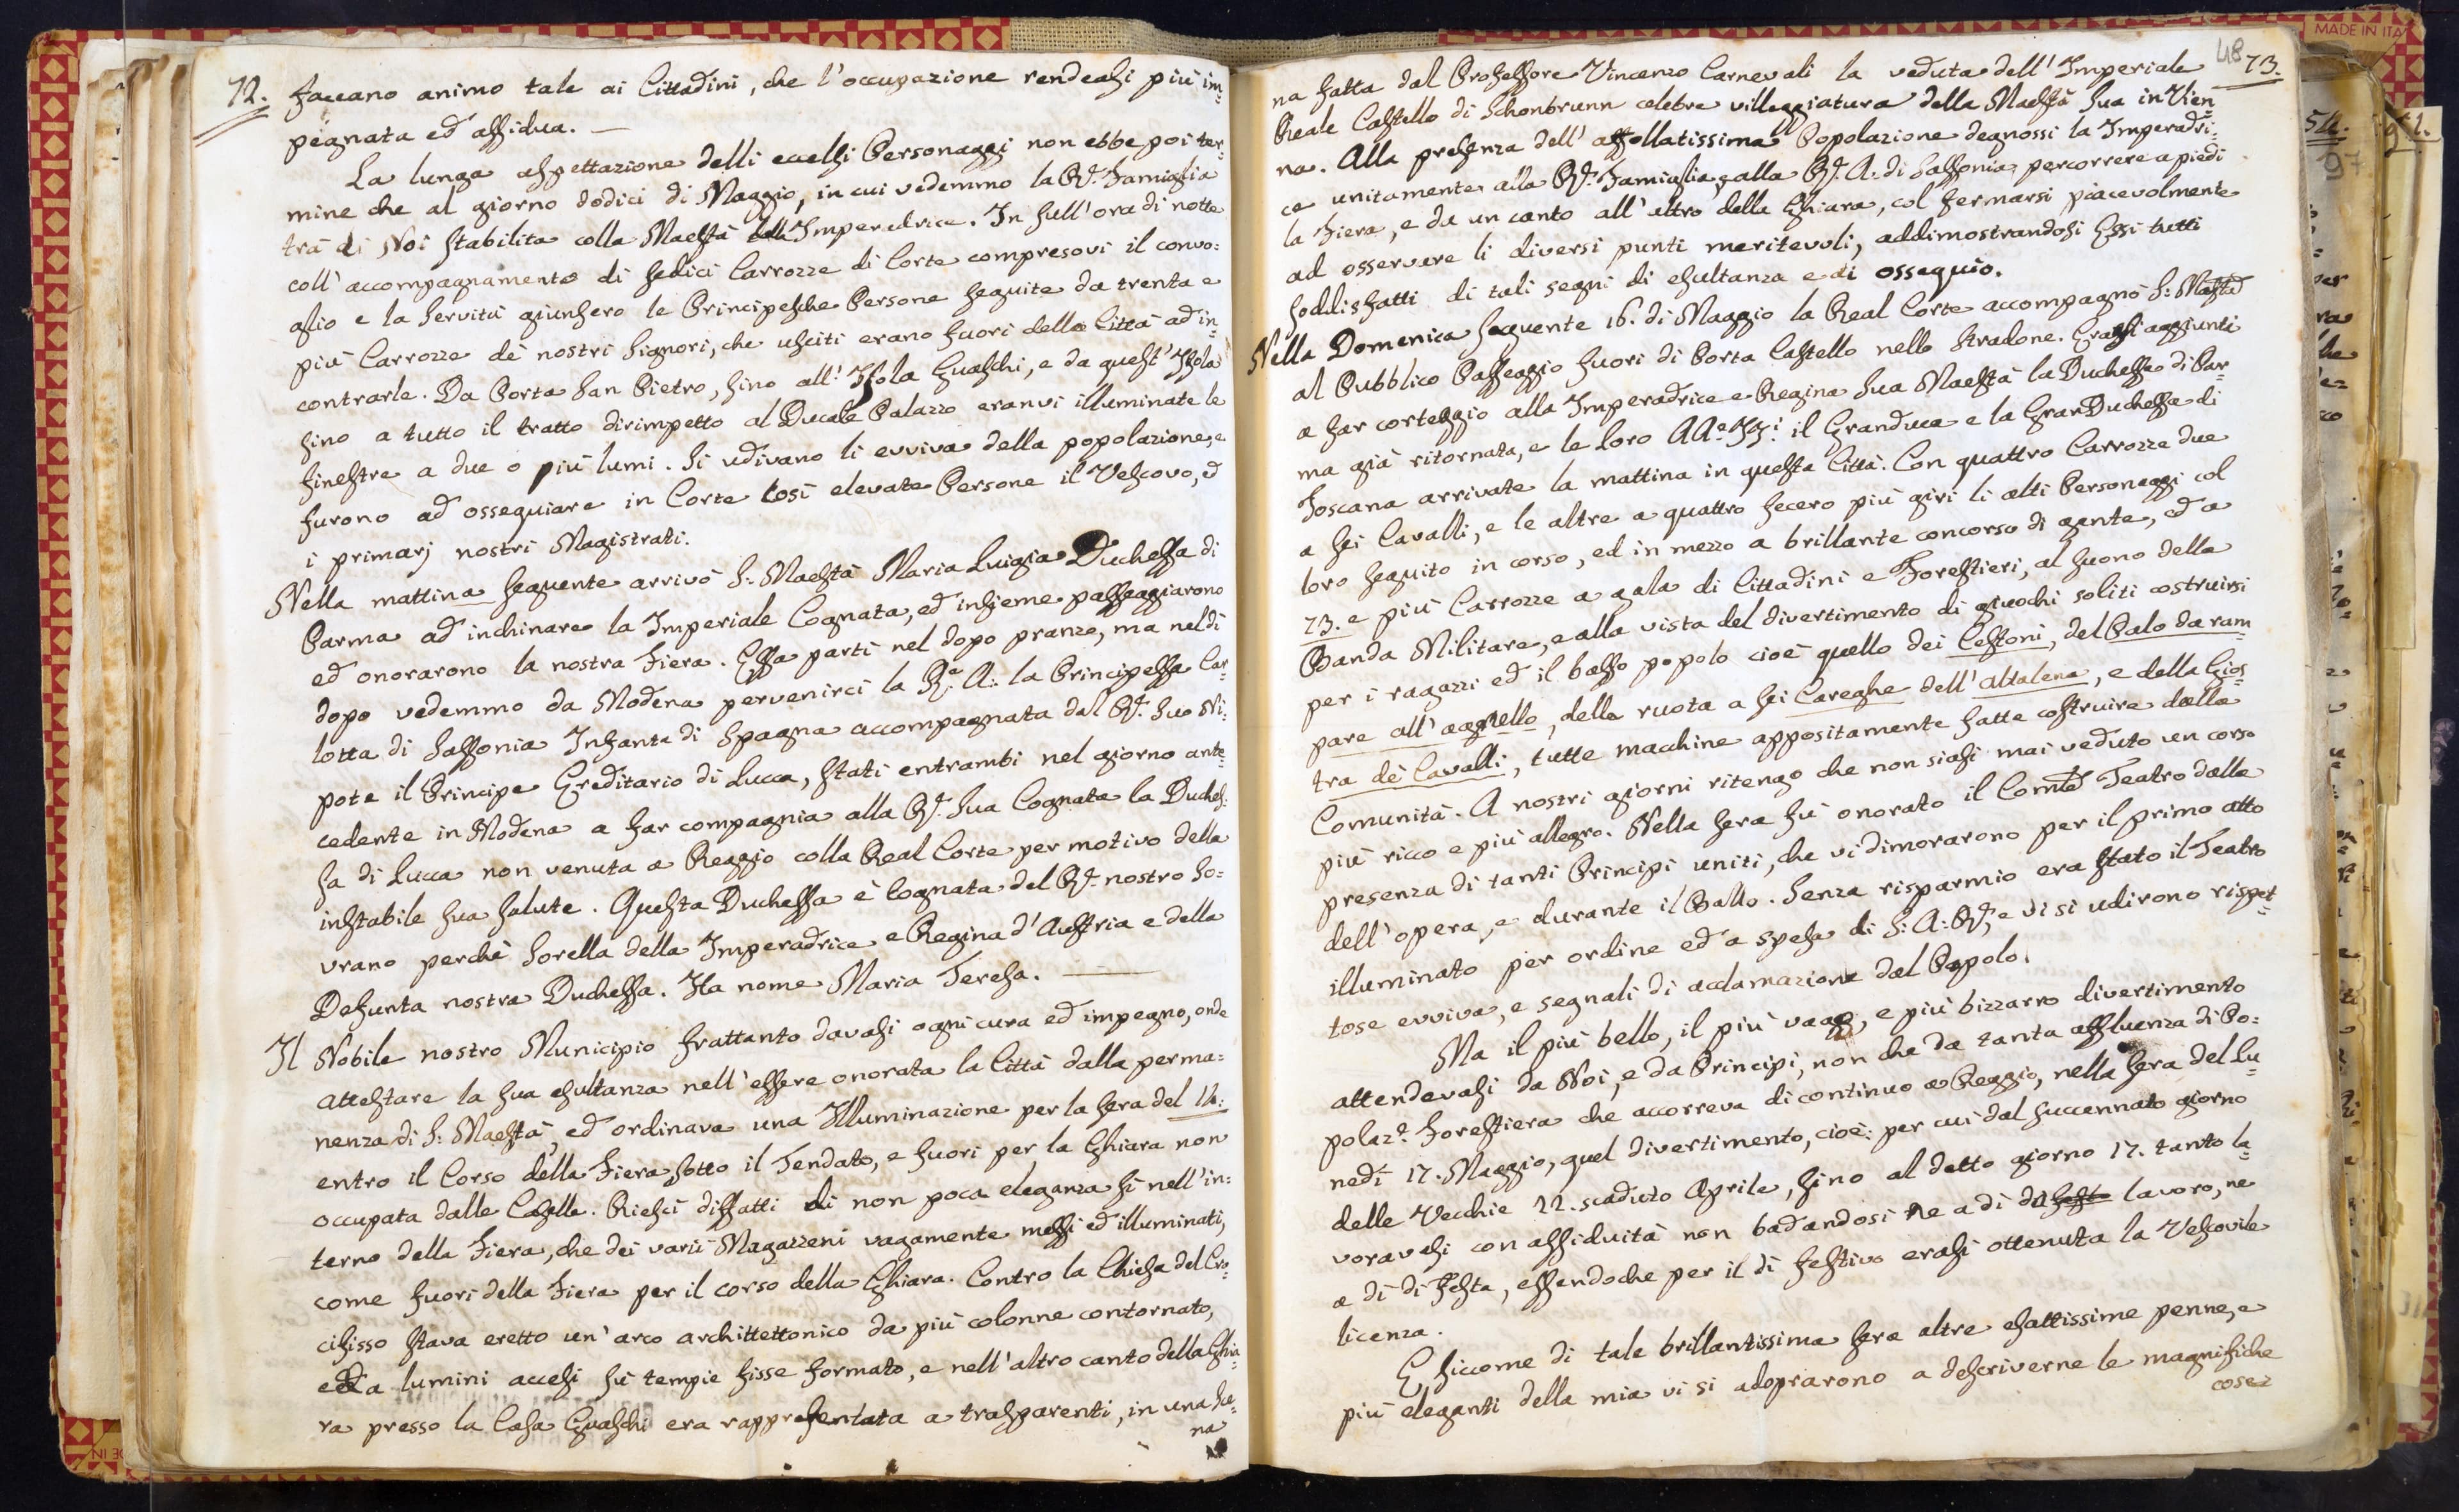 72.
faceano animo tale ai Cittadini, che l'occupazione rendeasi più im=
pegnata ed assidua. —
La lunga aspettazione delli eccelsi Personaggi non ebbe poi ter=
mine che al giorno dodici di Maggio, in cui vedemmo la R.e Famiglia
trà di Noi stabilita colla Maestà Imperadrice. In sull'ora di notte
coll'accompagnamento di sedici Carrozze di Corte compresovi il convo=
glio e la Servitù giunsero le Principesche Persone seguite da trenta e
più Carrozze de' nostri Signori, che usciti erano fuori della Città ad in=
contrarle. Da Porta San Pietro, sino all' Isola Guaschi, e da quest' Isola
sino a tutto il tratto dirimpetto al Ducale Palazzo eranvi illuminate le
finestre a due o più lumi. Si udivano li evviva della popolazione, e
furono ad ossequiare in Corte così elevate Persone il Vescovo, ed
i primarj nostri Magistrati.
Nella mattina seguente arrivò S: Maestà Maria Luigia Duchessa di
Parma ad inchinare la Imperiale Cognata, ed insieme passeggiarono
ed onorarono la nostra Fiera. Essa partì nel dopo pranzo, ma nel dì
dopo vedemmo da Modena pervenirci la R.e A: la Principessa Car=
lotta di Sassonia Infanta di Spagna accompagnata dal R.e Suo Ni=
pote il Principe Ereditario di Lucca, stati entrambi nel giorno ante=
cedente in Modena a far compagnia alla R.e Sua Cognata la Duches=
sa di Lucca non venuta a Reggio colla Real Corte per motivo della
instabile sua salute. Questa Duchessa è Cognata del R.e nostro So=
vrano perchè Sorella della Imperadrice e Regina d'Austria e della
Defunta nostra Duchessa. Ha nome Maria Teresa. —
Il Nobile nostro Municipio frattanto davasi ogni cura ed impegno, onde
attestare la sua esultanza nell'essere onorata la Città dalla perma=
nenza di S: Maestà, ed ordinava una Illuminazione per la sera del 14:
entro il Corso della Fiera sotto il Tendato, e fuori per la Ghiara non
occupata dalle Caselle. Riescì diffatti di non poca eleganza sì nell'in=
terno della Fiera, che dei varii Magazzeni vagamente messi ed illuminati,
come fuori della Fiera per il corso della Ghiara. Contro la Chiesa del Cro=
cifisso stava eretto un' arco architettonico da più colonne contornato,
ed a lumini accesi sù tempie fisse formato, e nell'altro canto della Ghia=
ra presso la Casa Guaschi era rappresentata a trasparenti, in una sce=
na
48
73.
na fatta dal Professore Vincenzo Carnevali la veduta dell' Imperiale
Reale Castello di Schonbrunn celebre villeggiatura della Maestà Sua in Vien=
na. Alla presenza dell' affollatissima Popolazione degnossi la Imperadri=
ce unitamente alla R.e Famiglia, e alla R.e A: di Sassonia, percorrere a piedi
la Fiera, e da un canto all'altro della Ghiara, col fermarsi piacevolmente
ad osservare li diversi punti meritevoli, addimostrandosi Essi tutti
soddisfatti di tali segni di esultanza e di ossequio.
Nella Domenica seguente 16. di Maggio la Real Corte accompagnò S: Maestà
al Pubblico Passeggio fuori di Porta Castello nello Stradone. Eransi aggiunti
a far corteggio alla Imperadrice e Regina Sua Maestà la Duchessa di Par=
ma già ritornata, e le Loro il Granduca e la GranDuchessa di
Toscana arrivate la mattina in questa Città. Con quattro Carrozze due
a sei Cavalli, e le altre a quattro fecero più giri li alti Personaggi col
loro seguito in corso, ed in mezzo a brillante concorso di gente, ed a
73. e più Carrozze a gala di Cittadini e Forestieri, al suono della
Banda Militare, e alla vista del divertimento di giuochi soliti costruirsi
per i ragazzi ed il basso popolo cioè quello dei Cestoni, del Palo da ram=
pare all' agnello, della ruota a sei Careghe dell' altalena, e della Gios=
tra dei Cavalli, tutte macchine appositamente fatte costruire dalla
Comunità. A nostri giorni ritengo che non siasi mai veduto un corso
più ricco e più allegro. Nella sera fù onorato il Teatro dalla
presenza di tanti Principi uniti, che vi dimorarono per il primo atto
dell'opera, e durante il Ballo. Senza risparmio era stato il Teatro
illuminato per ordine ed a spesa di S: A: R.e, e vi si udirono rispet=
tose evviva, e segnali di acclamazione dal Popolo.
Ma il più bello, il più vago, e più bizzarro divertimento
attendevasi da Noi, e da Principi, non che da tanta affluenza di Po=
polaz.e Forestiera che accorreva di continuo a Reggio, nella sera del Lu=
nedì 17. Maggio, quel divertimento, cioè: per cui dal succennato giorno
delle Vecchie 22. scaduto Aprile, fino al detto giorno 17. tanto la=
voravasi con assiduità non badandosi ne a dì da lavoro, ne
a dì di Festa, essendochè per il dì festivo erasi ottenuta la Vescovile
licenza.
E siccome di tale brillantissima sera altre esattissime penne, e
più eleganti della mia vi si adoprarono a descriverne le magnifiche
cose
MADE IN ITA